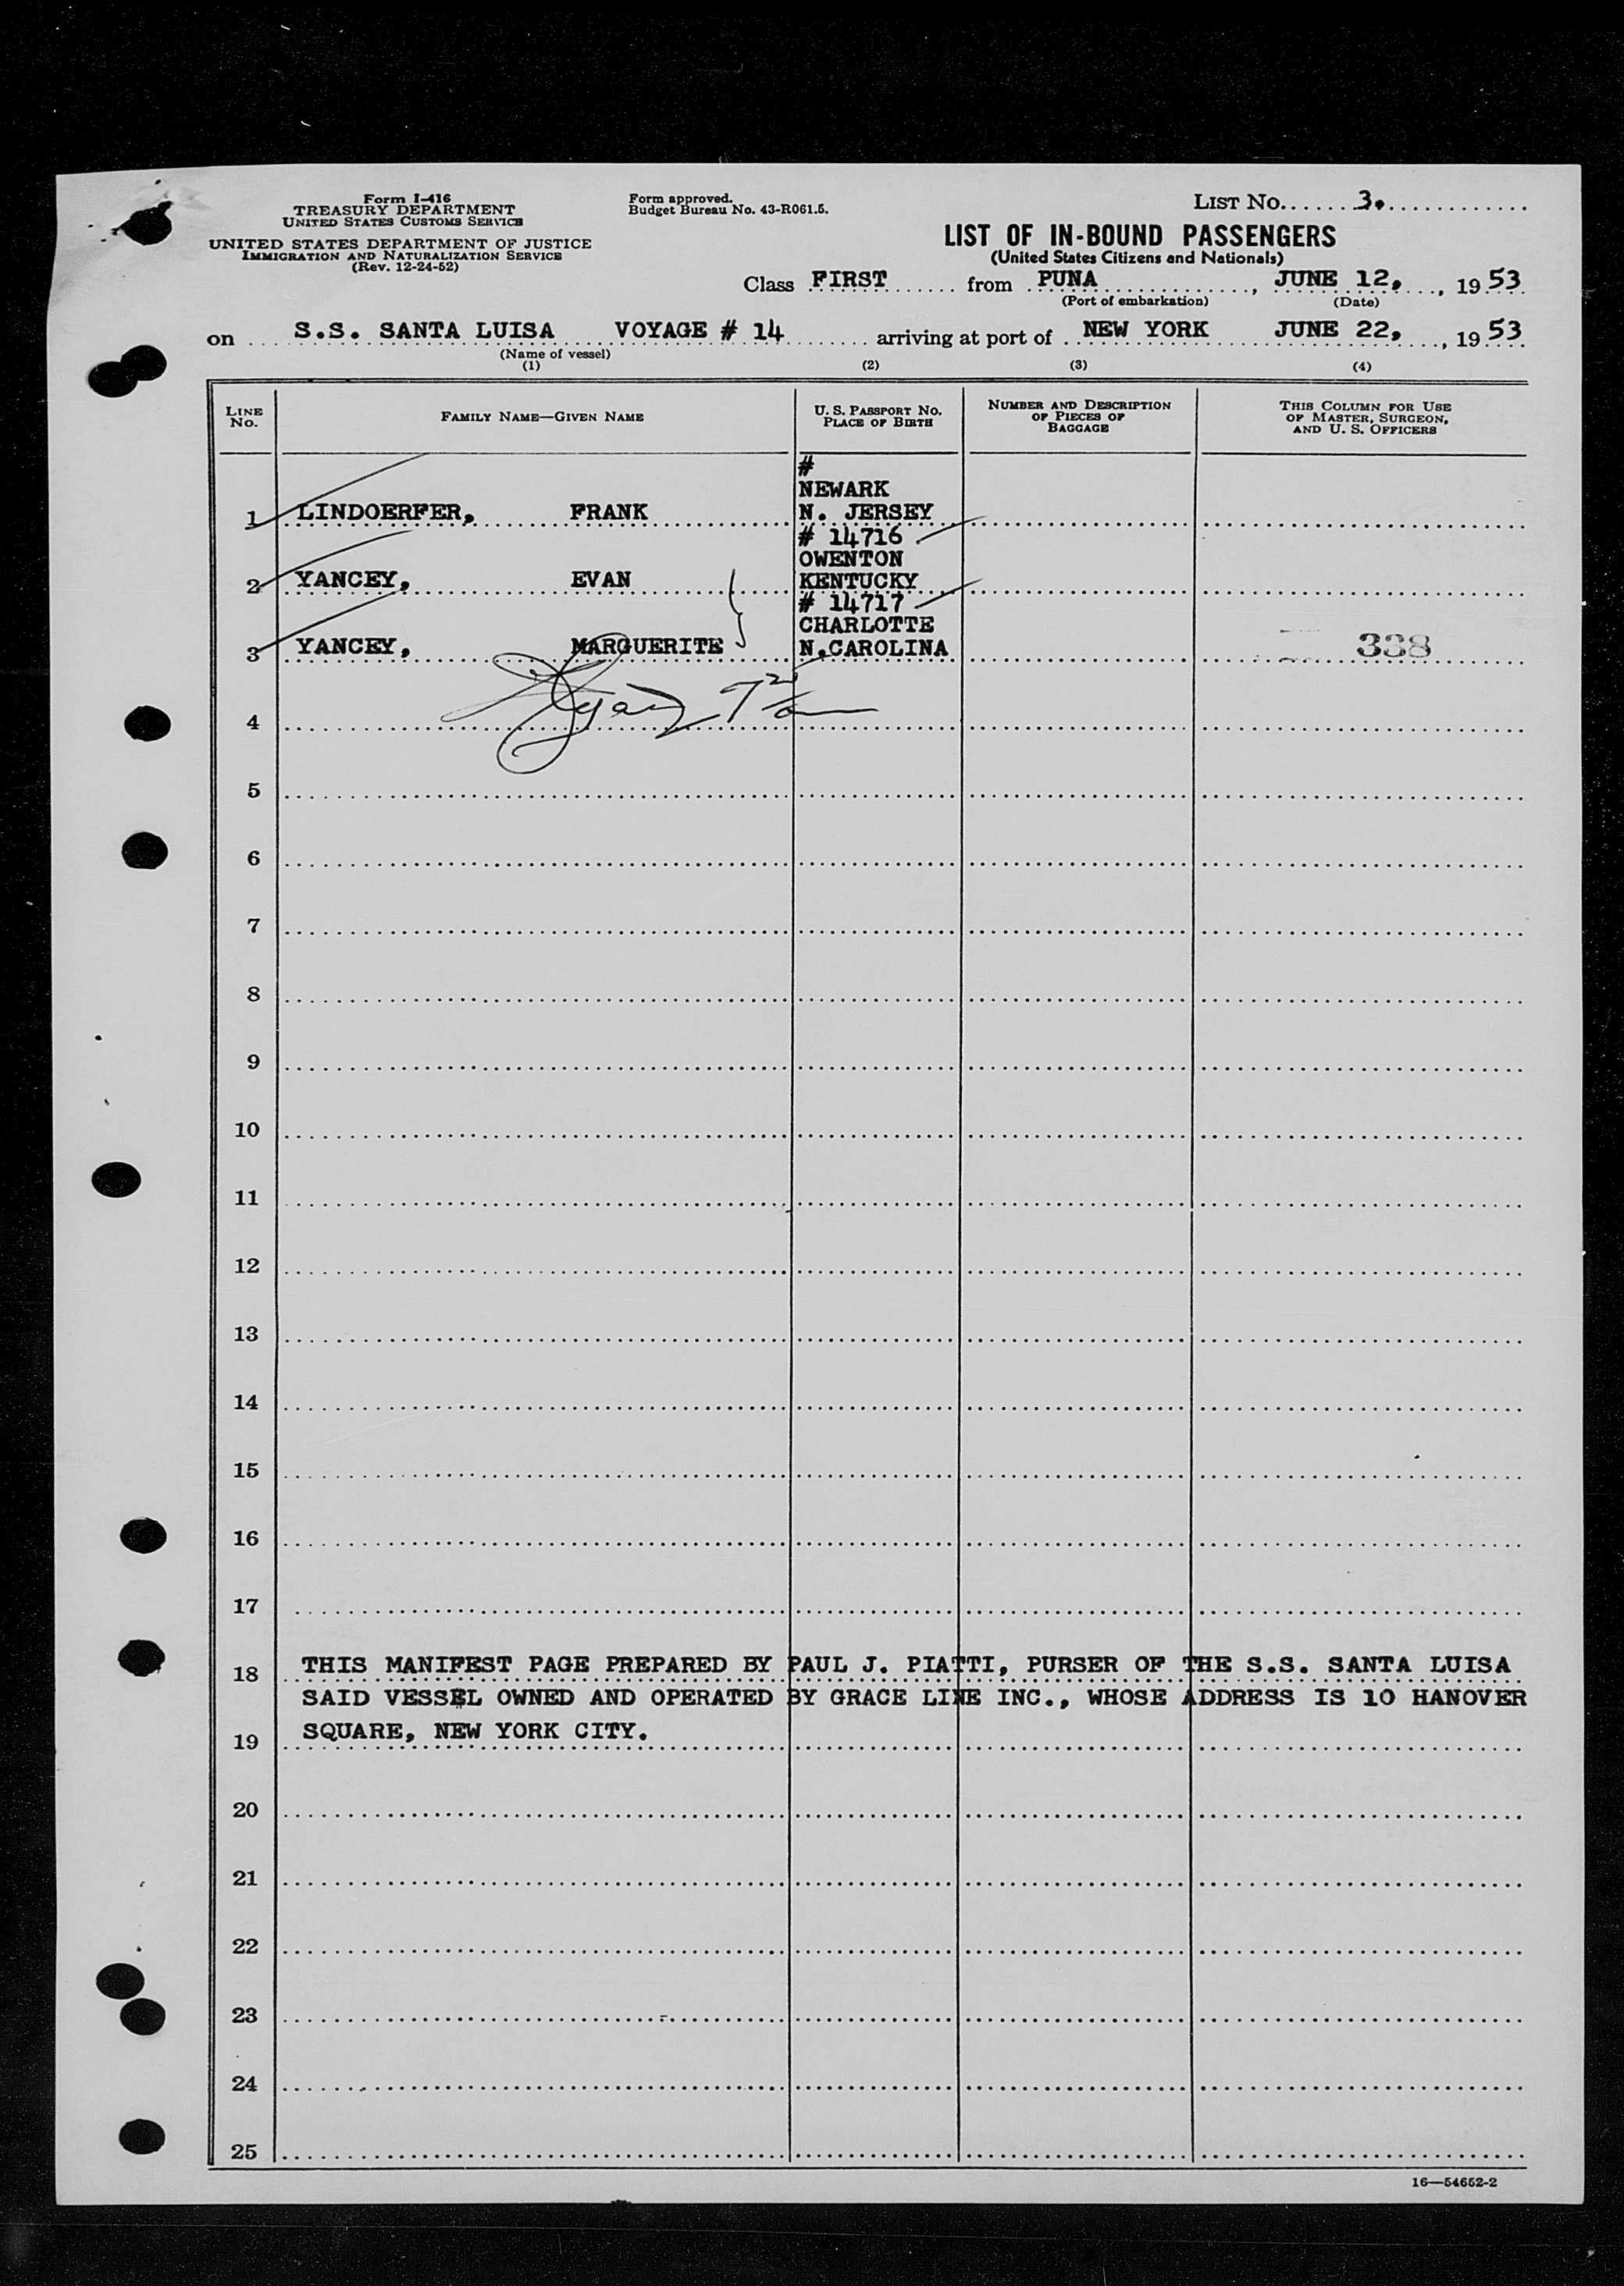 Form I-416
TREASURY DEPARTMENT
UNITED STATES CUSTOMS SERVICE
UNITED STATES DEPARTMENT OF JUSTICE
IMMIGRATION AND NATURALIZATION SERVICE
(Rev. 12-24-52)
Form approved.
Budget Bureau No. 43-R061.5.
LIST No. 3.
LIST OF IN-BOUND PASSENGERS
(United States Citizens and Nationals)
Class FIRST from PUNA, JUNE 12, 1953
(Port of embarkation) (Date)
on S.S. SANTA LUISA VOYAGE # 14 arriving at port of NEW YORK JUNE 22, 1953
(Name of vessel)
(1) (2) (3) (4)
LINE No. FAMILY NAME—GIVEN NAME U. S. PASSPORT No. PLACE OF BIRTH NUMBER AND DESCRIPTION OF PIECES OF BAGGAGE THIS COLUMN FOR USE OF MASTER, SURGEON, AND U. S. OFFICERS
#
NEWARK
1 LINDOERFER, FRANK N. JERSEY
# 14716
OWENTON
2 YANCEY, EVAN KENTUCKY
# 14717
CHARLOTTE
3 YANCEY, MARGUERITE N.CAROLINA 338
4
5
6
7
8
9
10
11
12
13
14
15
16
17
18 THIS MANIFEST PAGE PREPARED BY PAUL J. PIATTI, PURSER OF THE S.S. SANTA LUISA
SAID VESSEL OWNED AND OPERATED BY GRACE LINE INC., WHOSE ADDRESS IS 10 HANOVER
19 SQUARE, NEW YORK CITY.
20
21
22
23
24
25
16—54652-2